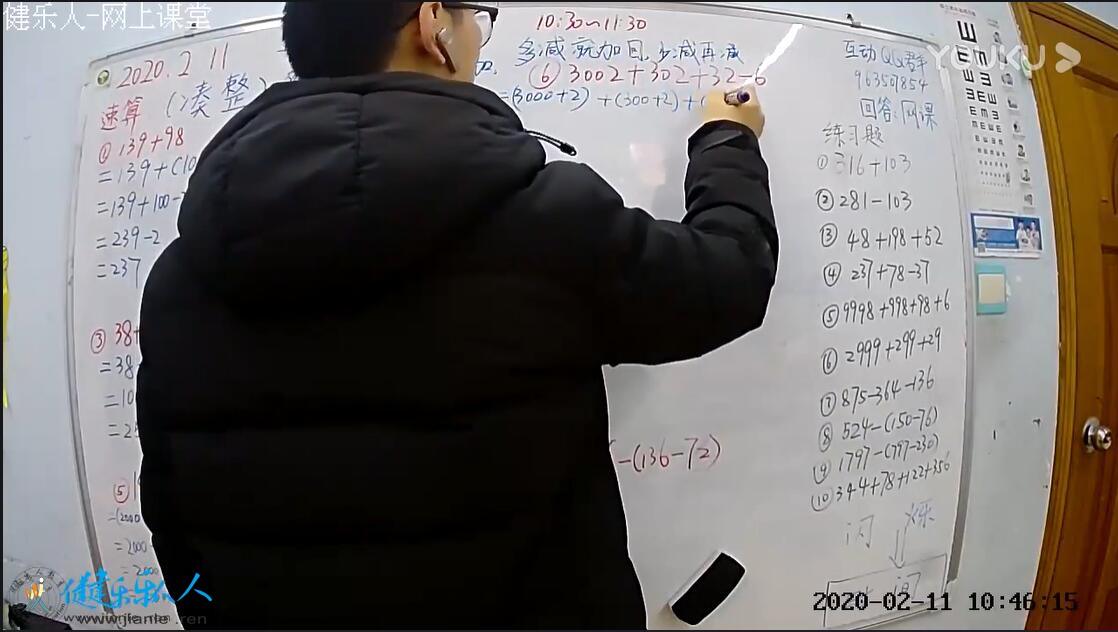 健乐人-网上课堂
YOUKU
2020.2 11
速算 (凑整)
① 139+98
=139+(10
=139+100-
=239-2
=237
③ 38+
=38
=10
=2
⑤
=(2000
=2000
10:30~11:30
多减就加回,少减再减
⑥ 3002+302+32-6
=(3000+2)+(300+2)+(
-(136-72)
互动QQ群
963509854
回答:网课
练习题
① 316+103
② 281-103
③ 48+198+52
④ 237+78-37
⑤ 9998+998+98+6
⑥ 2999+299+29
⑦ 875-364-136
⑧ 524-(150-76)
⑨ 1797-(797-230)
⑩ 344+78+122+356
闪
健乐人
www.jianle.ren
2020-02-11 10:46:15